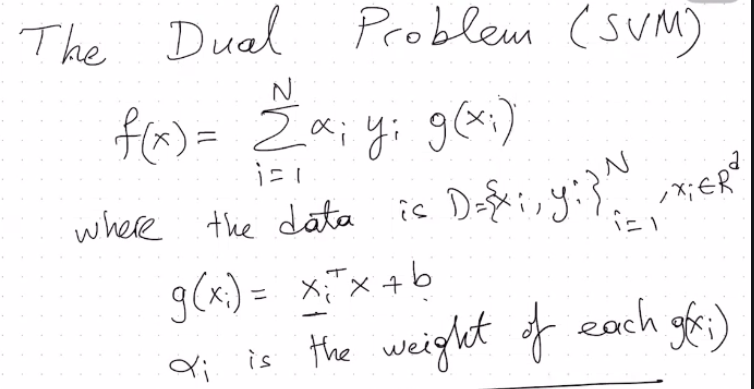 The Dual Problem (SVM)
f(x) = Σ_{i=1}^{N} α_i y_i g(x_i)
where the data is D={x_i, y_i}_{i=1}^{N}, x_i ∈ R^d
g(x_i) = x_i^T x + b
α_i is the weight of each g(x_i)